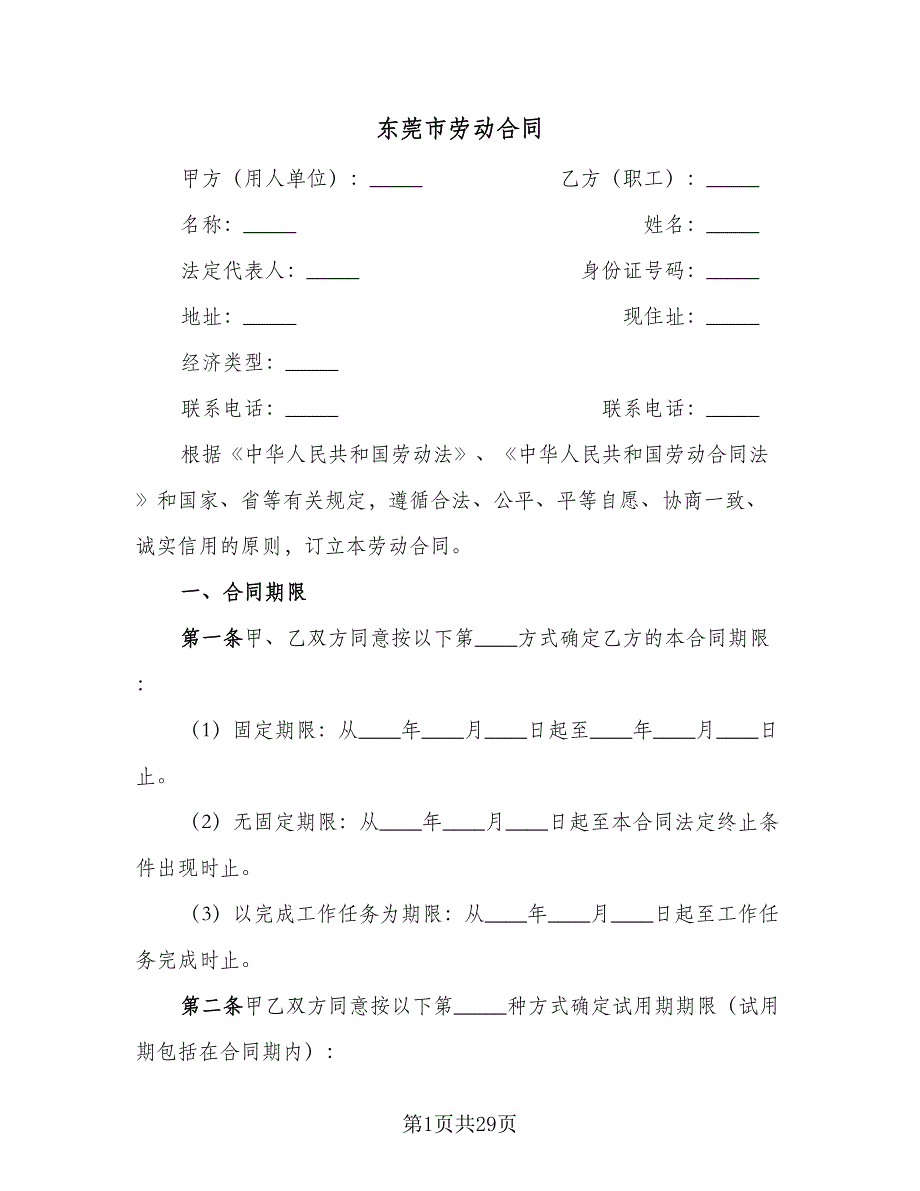 东莞市劳动合同
甲方（用人单位）：_____ 乙方（职工）：_____
名称：_____ 姓名：_____
法定代表人：_____ 身份证号码：_____
地址：_____ 现住址：_____
经济类型：_____
联系电话：_____ 联系电话：_____
根据《中华人民共和国劳动法》、《中华人民共和国劳动合同法
》和国家、省等有关规定，遵循合法、公平、平等自愿、协商一致、
诚实信用的原则，订立本劳动合同。
一、合同期限
第一条甲、乙双方同意按以下第____方式确定乙方的本合同期限
：
（1）固定期限：从____年____月____日起至____年____月____日
止。
（2）无固定期限：从____年____月____日起至本合同法定终止条
件出现时止。
（3）以完成工作任务为期限：从____年____月____日起至工作任
务完成时止。
第二条甲乙双方同意按以下第_____种方式确定试用期期限（试用
期包括在合同期内）：
第1页共29页